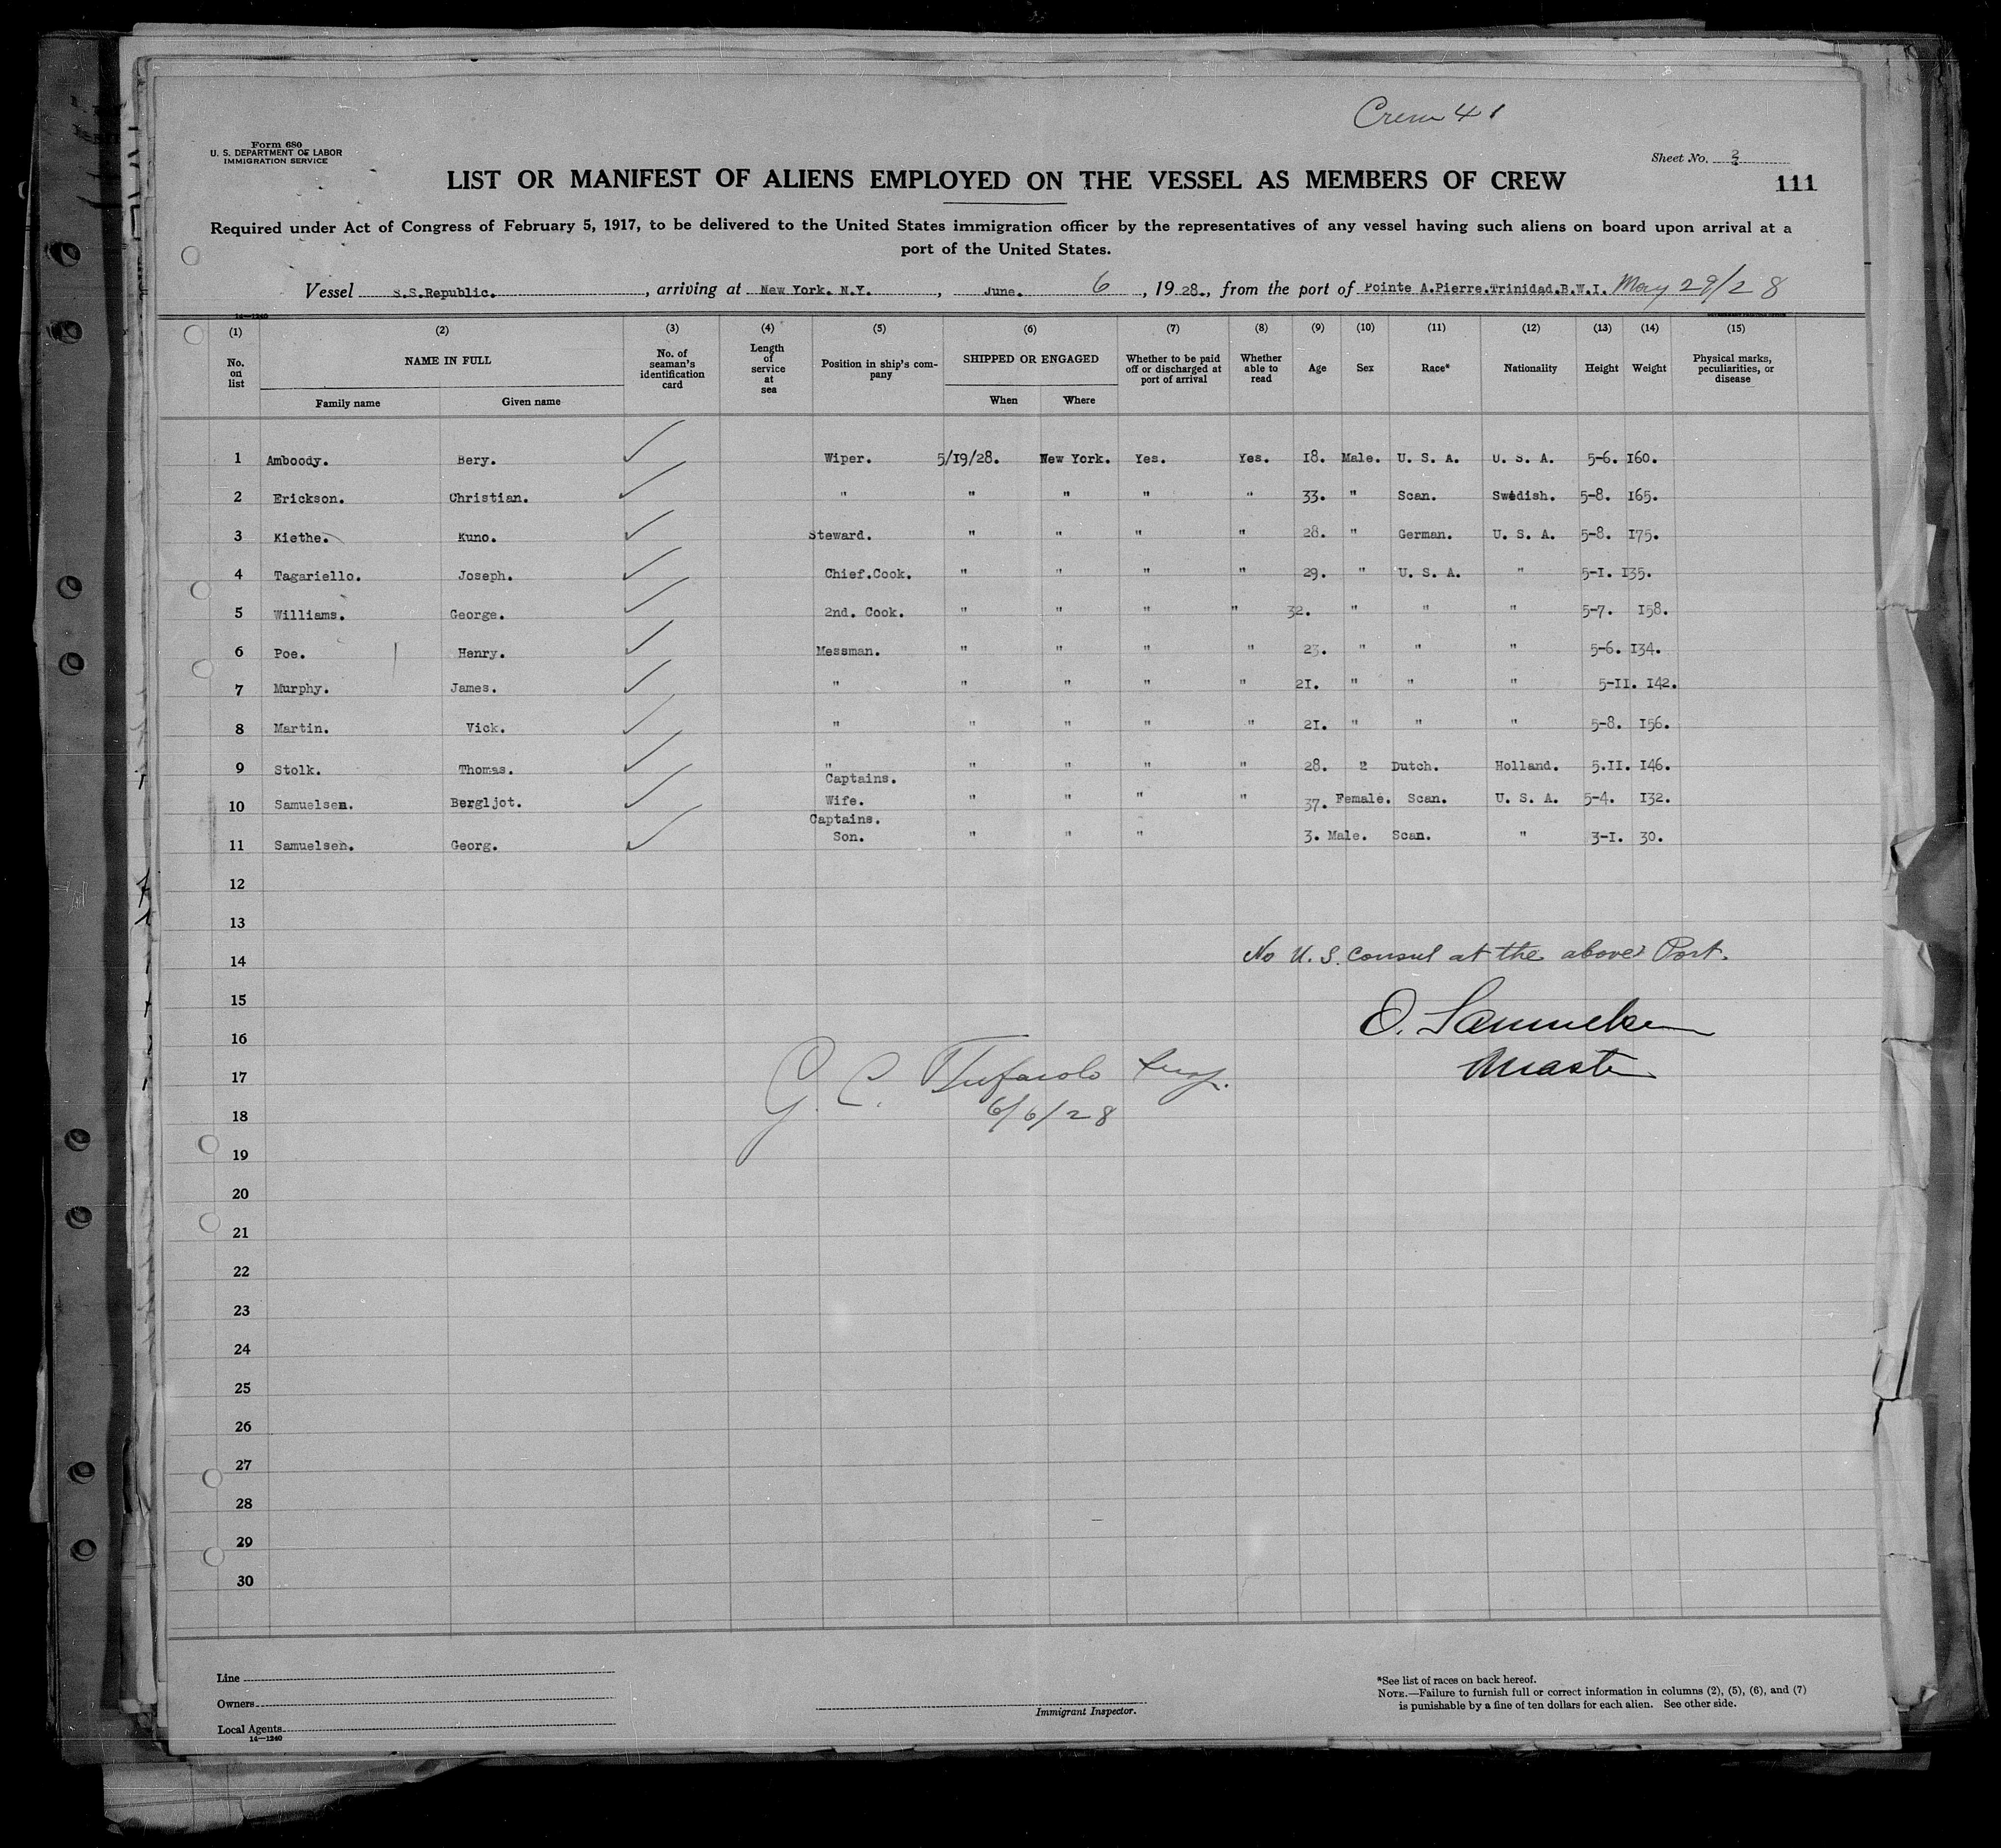 Crew 41
Form 680
U. S. DEPARTMENT OF LABOR
IMMIGRATION SERVICE
Sheet No. 3
LIST OR MANIFEST OF ALIENS EMPLOYED ON THE VESSEL AS MEMBERS OF CREW
111
Required under Act of Congress of February 5, 1917, to be delivered to the United States immigration officer by the representatives of any vessel having such aliens on board upon arrival at a
port of the United States.
Vessel S.S.Republic. , arriving at New York. N.Y. , June. 6 , 19 28., from the port of Pointe A.Pierre.Trinidad.B.W.I. May 29/28
14—1240
(1) (2) (3) (4) (5) (6) (7) (8) (9) (10) (11) (12) (13) (14) (15)
No. on list NAME IN FULL No. of seaman's identification card Length of service at sea Position in ship's company SHIPPED OR ENGAGED Whether to be paid off or discharged at port of arrival Whether able to read Age Sex Race* Nationality Height Weight Physical marks, peculiarities, or disease
Family name Given name When Where
1 Amboody. Bery. Wiper. 5/19/28. New York. Yes. Yes. 18. Male. U. S. A. U. S. A. 5-6. 160.
2 Erickson. Christian. " " " " " 33. " Scan. Swedish. 5-8. 165.
3 Kiethe. Kuno. Steward. " " " " 28. " German. U. S. A. 5-8. 175.
4 Tagariello. Joseph. Chief.Cook. " " " " 29. " U. S. A. " 5-1. 135.
5 Williams. George. 2nd. Cook. " " " " 32. " " " 5-7. 158.
6 Poe. Henry. Messman. " " " " 23. " " " 5-6. 134.
7 Murphy. James. " " " " " 21. " " " 5-11. 142.
8 Martin. Vick. " " " " " 21. " " " 5-8. 156.
9 Stolk. Thomas. " " " " " 28. 2 Dutch. Holland. 5.11. 146.
10 Samuelsen. Bergljot. Captains. Wife. " " " " 37. Female. Scan. U. S. A. 5-4. 132.
11 Samuelsen. Georg. Captains. Son. " " " 3. Male. Scan. " 3-1. 30.
12
13
14
No U. S. Consul at the above Port.
15
O. Samuelsen
16
Master
17
G. C. Insp.
18
6/6/28
19
20
21
22
23
24
25
26
27
28
29
30
Line
Owners
Local Agents
14—1240
Immigrant Inspector.
*See list of races on back hereof.
NOTE.—Failure to furnish full or correct information in columns (2), (5), (6), and (7)
is punishable by a fine of ten dollars for each alien. See other side.